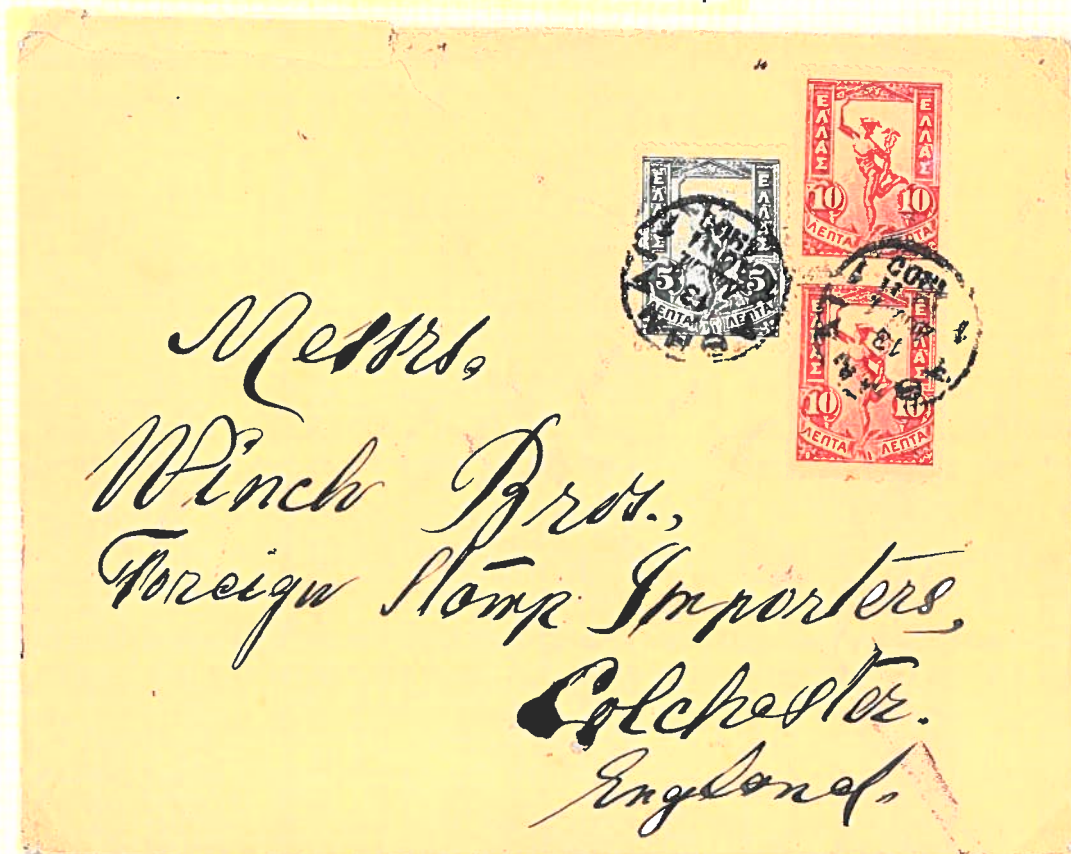 ΕΛΛΑΣ ΕΛΛΑΣ
10 10
ΛΕΠΤΑ ΛΕΠΤΑ
ΕΛΛΑΣ ΕΛΛΑΣ
5 5
ΛΕΠΤΑ ΛΕΠΤΑ
ΕΛΛΑΣ ΕΛΛΑΣ
10 10
ΛΕΠΤΑ ΛΕΠΤΑ
13
13
Messrs.
Winch Bros.,
Foreign Stamp Importers,
Colchester.
England.